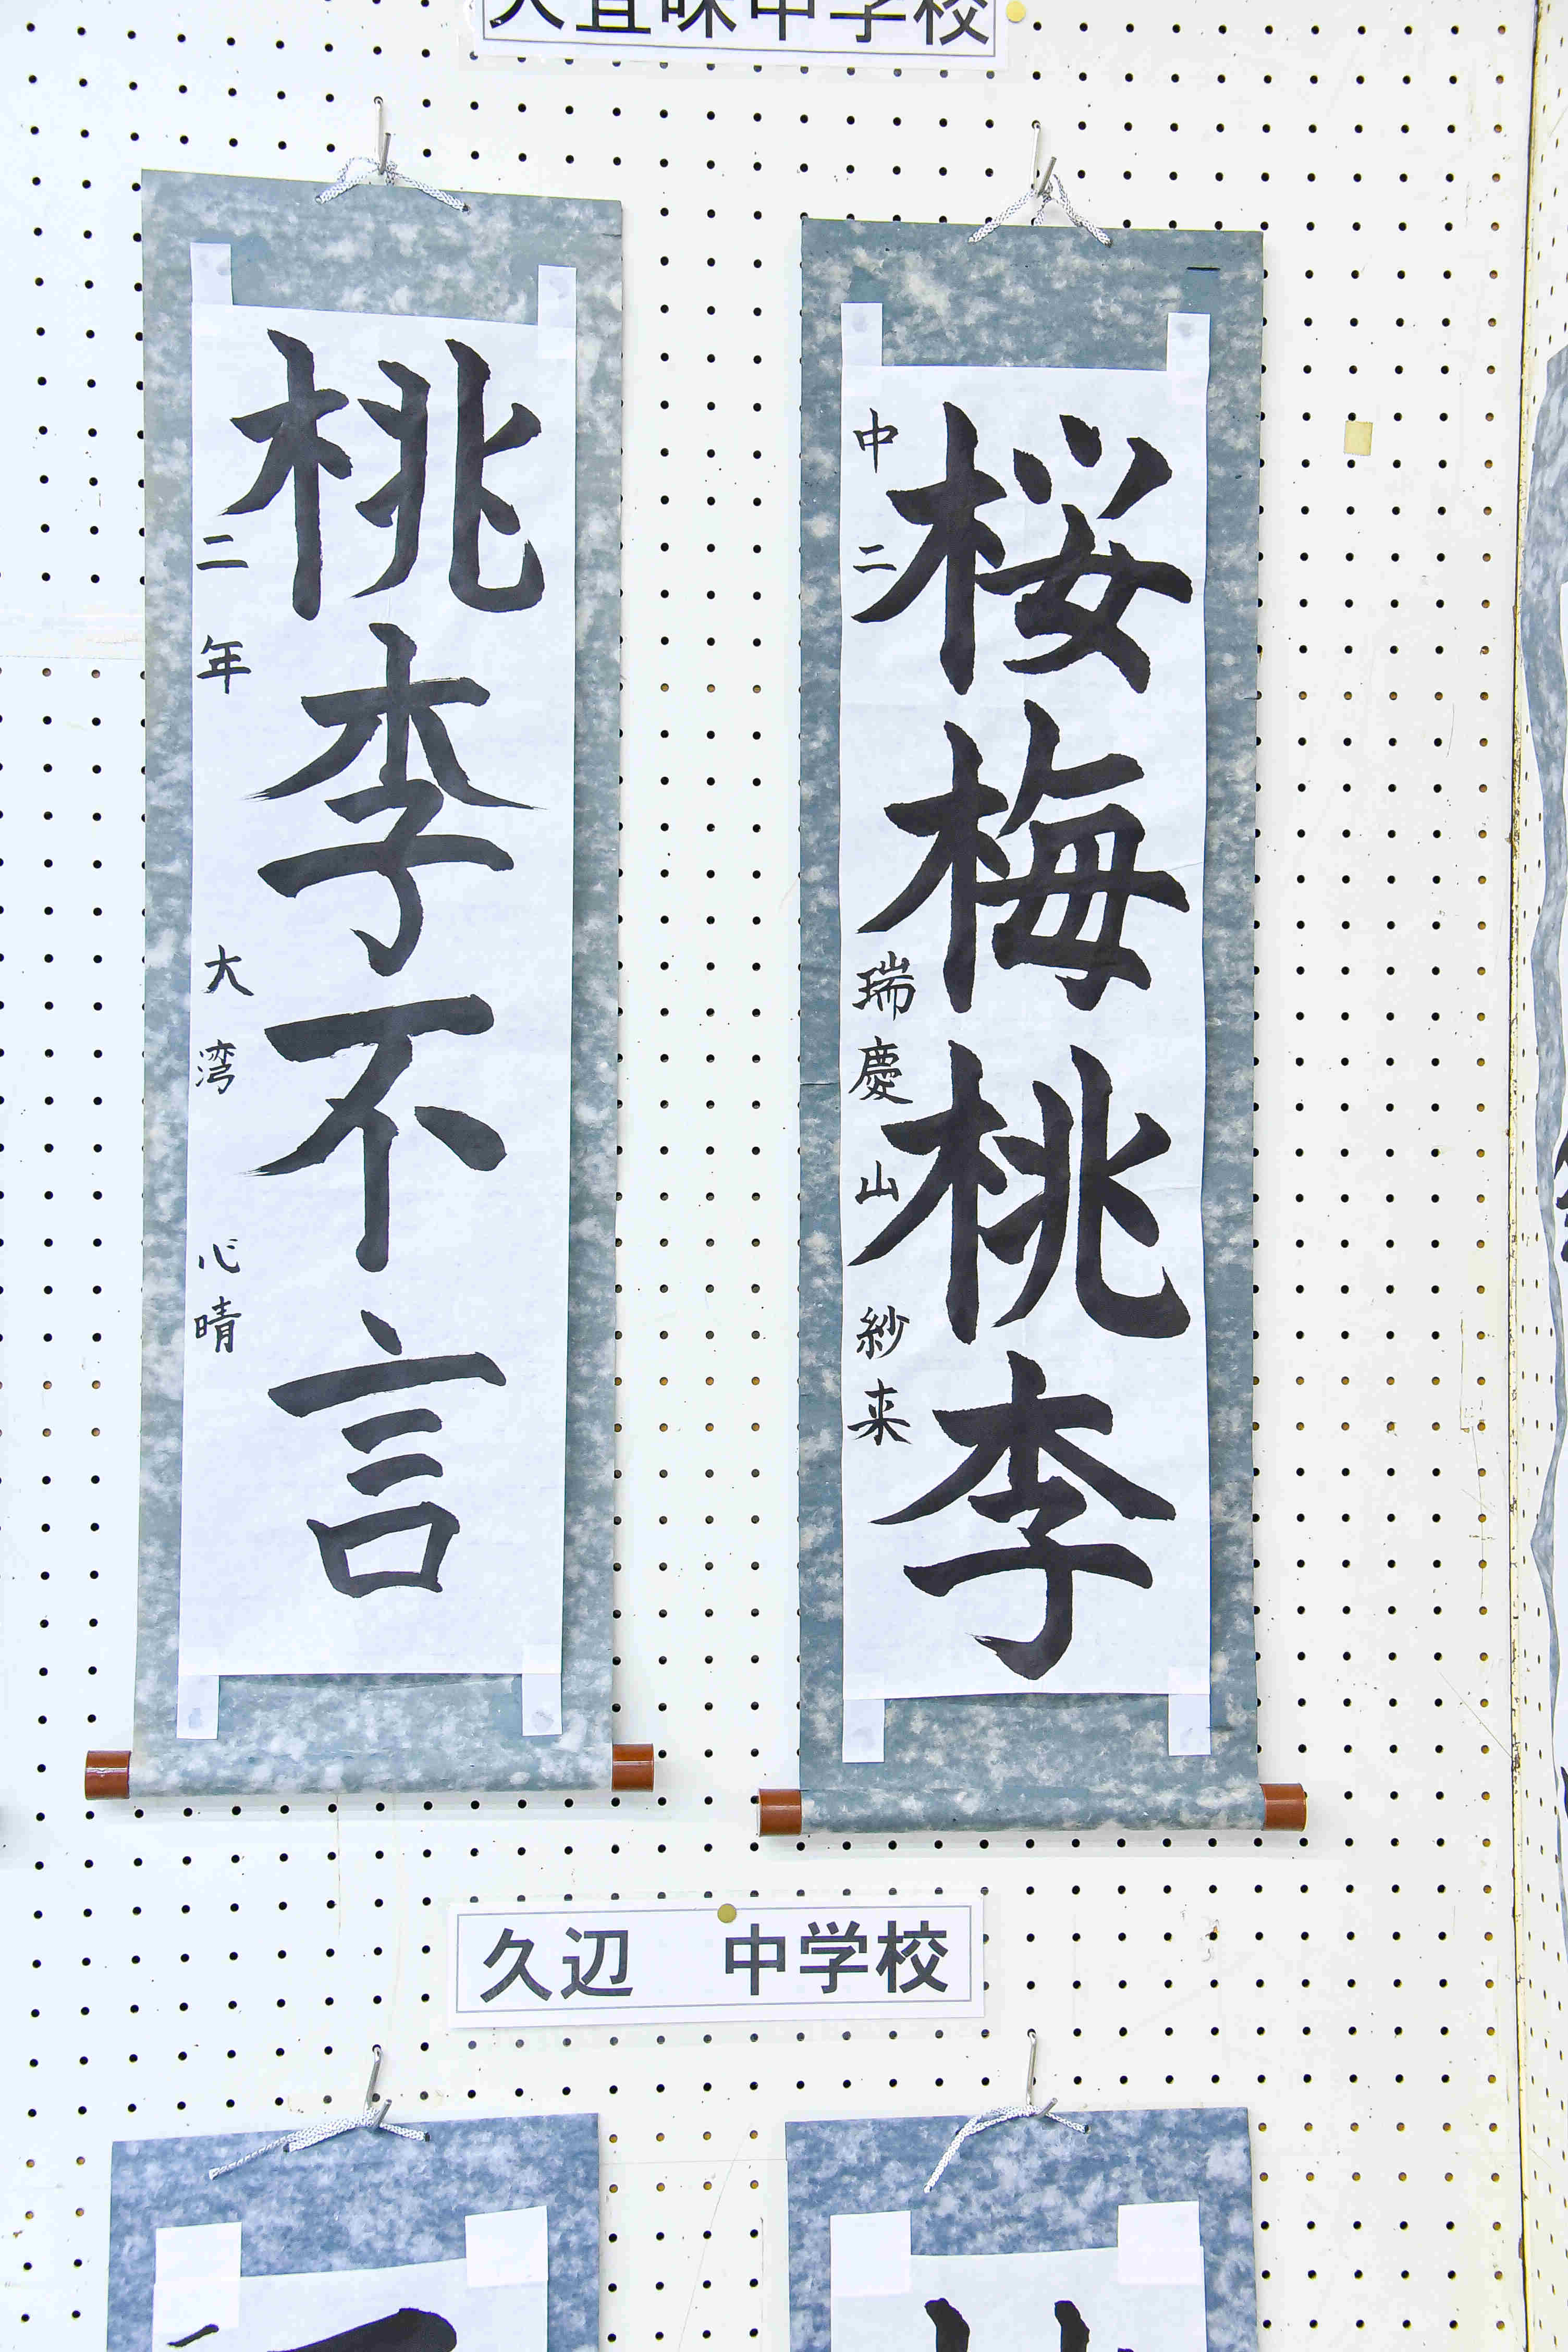 大宜味中学校
桜梅桃李
中二 瑞慶山 紗来
桃李不言
二年 大湾 心晴
久辺 中学校